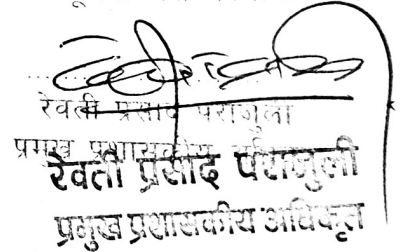 रेवती प्रसाद पराजुली
प्रमुख प्रशासकीय
रेवती प्रसाद पराजुली
प्रमुख प्रशासकीय अधिकृत